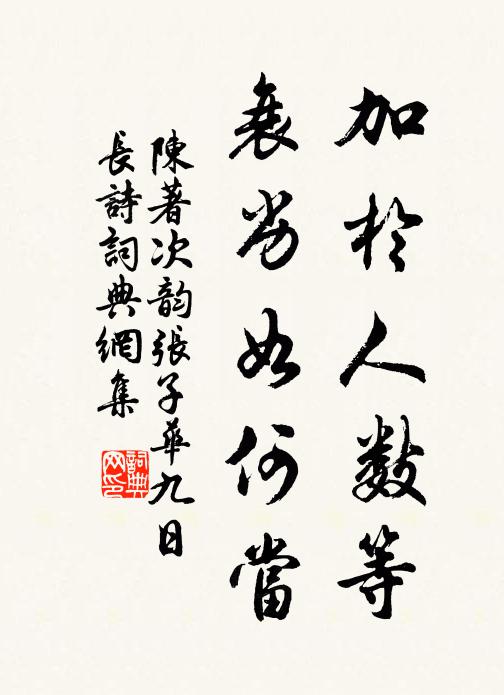 加於人數等
衰劣如何當
陳著次韵張子華九日
長詩詞典網集
詞典
网印